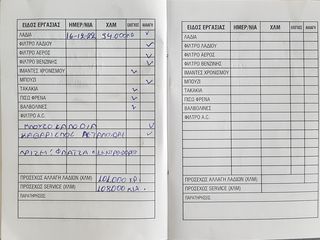 ΕΙΔΟΣ ΕΡΓΑΣΙΑΣ ΗΜΕΡ/ΝΙΑ ΧΛΜ ΕΛΕΓΧΟΣ ΑΛΛΑΓΗ
ΛΑΔΙΑ
ΦΙΛΤΡΟ ΛΑΔΙΟΥ
ΦΙΛΤΡΟ ΑΕΡΟΣ
ΦΙΛΤΡΟ ΒΕΝΖΙΝΗΣ
ΙΜΑΝΤΕΣ ΧΡΟΝΙΣΜΟΥ
ΜΠΟΥΖΙ
ΤΑΚΑΚΙΑ
ΠΙΣΩ ΦΡΕΝΑ
ΒΑΛΒΟΛΙΝΕΣ
ΦΙΛΤΡΟ A.C.
ΜΠΟΥΖΟΚΑΛΩΔΙΑ
ΚΑΘΑΡΙΣΜΟΣ
ΠΡΟΣΕΧΩΣ ΑΛΛΑΓΗ ΛΑΔΙΩΝ (ΧΛΜ)
ΠΡΟΣΕΧΩΣ SERVICE (ΧΛΜ) 108000
ΠΑΡΑΤΗΡΗΣΕΙΣ
ΕΙΔΟΣ ΕΡΓΑΣΙΑΣ ΗΜΕΡ/ΝΙΑ ΧΛΜ ΕΛΕΓΧΟΣ ΑΛΛΑΓΗ
ΛΑΔΙΑ
ΦΙΛΤΡΟ ΛΑΔΙΟΥ
ΦΙΛΤΡΟ ΑΕΡΟΣ
ΦΙΛΤΡΟ ΒΕΝΖΙΝΗΣ
ΙΜΑΝΤΕΣ ΧΡΟΝΙΣΜΟΥ
ΜΠΟΥΖΙ
ΤΑΚΑΚΙΑ
ΠΙΣΩ ΦΡΕΝΑ
ΒΑΛΒΟΛΙΝΕΣ
ΦΙΛΤΡΟ A.C.
ΠΡΟΣΕΧΩΣ ΑΛΛΑΓΗ ΛΑΔΙΩΝ (ΧΛΜ)
ΠΡΟΣΕΧΩΣ SERVICE (ΧΛΜ)
ΠΑΡΑΤΗΡΗΣΕΙΣ